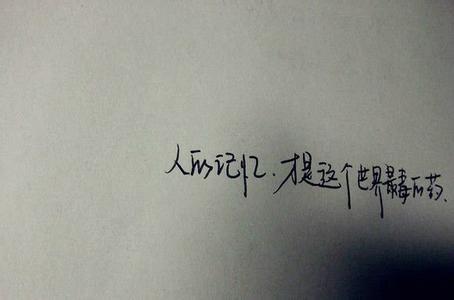 人的记忆.才是这个世界最毒的药、